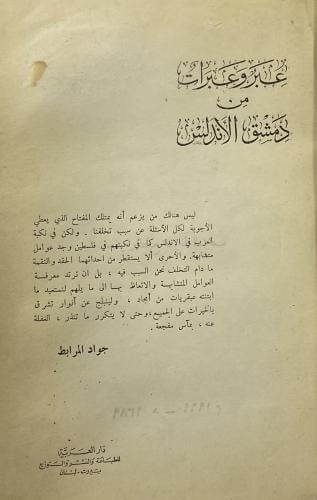 عِبَر وَعَبَرات
مِن
دِمَشق الأندلس
ليس هنالك من يزعم أنه يمتلك المفتاح الذي يعطي
الأجوبة لكل الأسئلة عن سبب تخلفنا ـ ولكن في نكبة
العرب في الاندلس كما في نكبتهم في فلسطين وجد عوامل
متشابهة. والأحرى ألا يستقطر من احداثهما الحقد والنقمة
ما دام التخلف نحن السبب فيه ، بل ان ترتد معرفة
العوامل المتشابهة والاتعاظ بهما الى ما يلهم لنستعيد ما
ابتنته عبقريات من أمجاد ، ولينبلج عن أنوار تشرق
بالخيرات على الجميع،وحتى لا يتكرر ما تنذر ، الغفلة
عنه ، بمآس مفجعة .
جواد المرابط
دار العربية
للطباعة والنشر والتوزيع
بيروت - لبنان